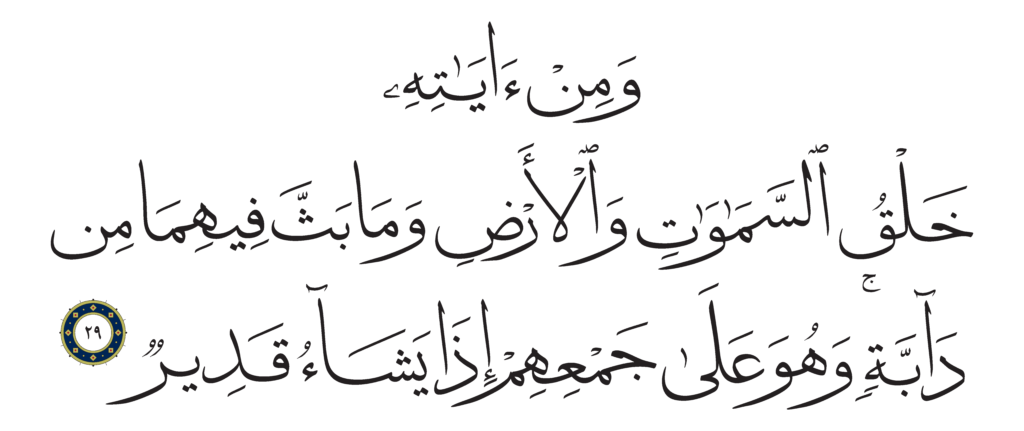 وَمِنْ ءَايَـٰتِهِۦ
خَلْقُ ٱلسَّمَـٰوَٰتِ وَٱلْأَرْضِ وَمَا بَثَّ فِيهِمَا مِن
دَآبَّةٍ ۚ وَهُوَ عَلَىٰ جَمْعِهِمْ إِذَا يَشَآءُ قَدِيرٌ ٢٩